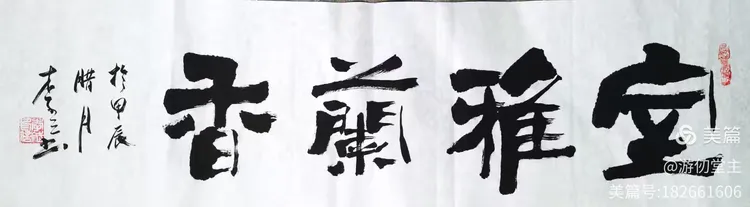 室雅蘭香
於甲辰
腊月
李三书
美篇
@游刃堂主
美篇号:182661606